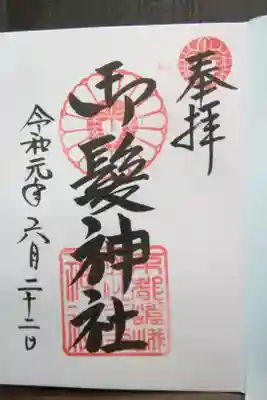 奉拝
御髪神社
令和元年六月二十二日